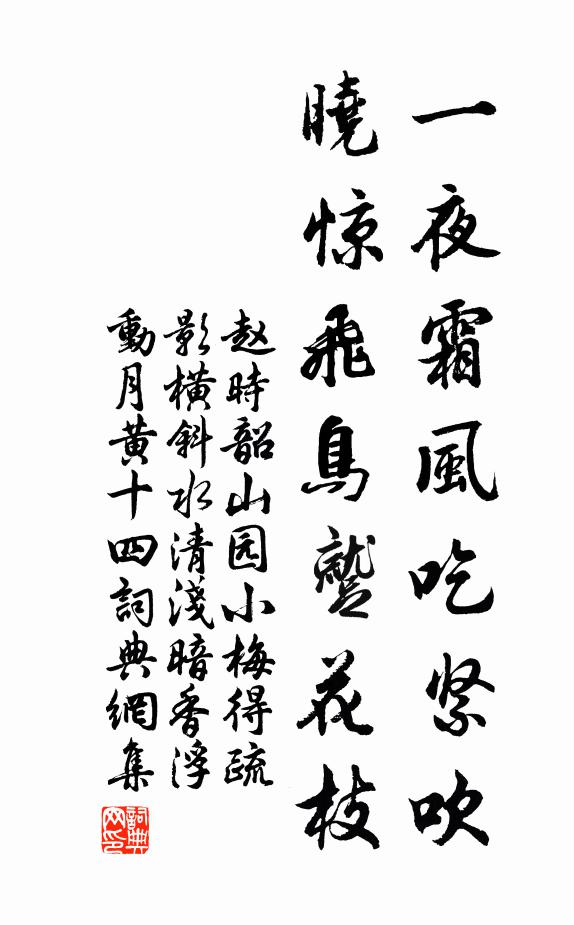 一夜霜風吃紧吹
曉惊飛鳥蹵花枝
赵時韶山园小梅得疏
影橫斜水清淺暗香浮
動月黄十四詞典網集
詞典网印